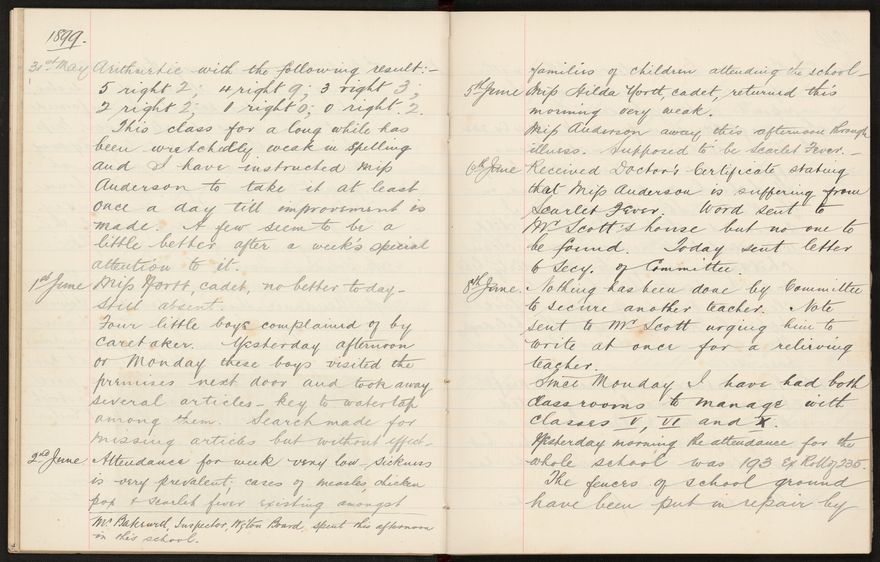 1899.
31st May Arithmetic with the following result:-
5 right 2; 4 right 9; 3 right 3;
2 right 2; 1 right 0; 0 right 2.
This class for a long while has
been wretchedly weak in spelling
and I have instructed Miss
Anderson to take it at least
once a day till improvement is
made. A few seem to be a
little better after a week's special
attention to it.
1st June Miss Yortt, cadet, no better today -
still absent.
Four little boys complained of by
caretaker. Yesterday afternoon
or Monday these boys visited the
premises next door and took away
several articles - key to water tap
among them. Search made for
missing articles but without effect.
2nd June Attendance for week very low - sickness
is very prevalent; cases of measles, chicken
pox & scarlet fever existing amongst
Mr. Bakewell, Inspector, Wgton Board, spent this afternoon
in this school.
families of children attending the school -
5th June Miss Hilda Yortt, cadet, returned this
morning very weak.
Miss Anderson away this afternoon through
illness. Supposed to be Scarlet Fever. -
6th June Received Doctor's Certificate stating
that Miss Anderson is suffering from
Scarlet Fever. Word sent to
Mr Scott's house but no one to
be found. Today sent letter
to Secy. of Committee.
8th June. Nothing has been done by Committee
to secure another teacher. Note
sent to Mr Scott urging him to
write at once for a relieving
teacher.
Since Monday I have had both
classrooms to manage with
classes V, VI and X.
Yesterday morning the attendance for the
whole school was 193 Ex Roll of 235.
The fences of school ground
have been put in repair by